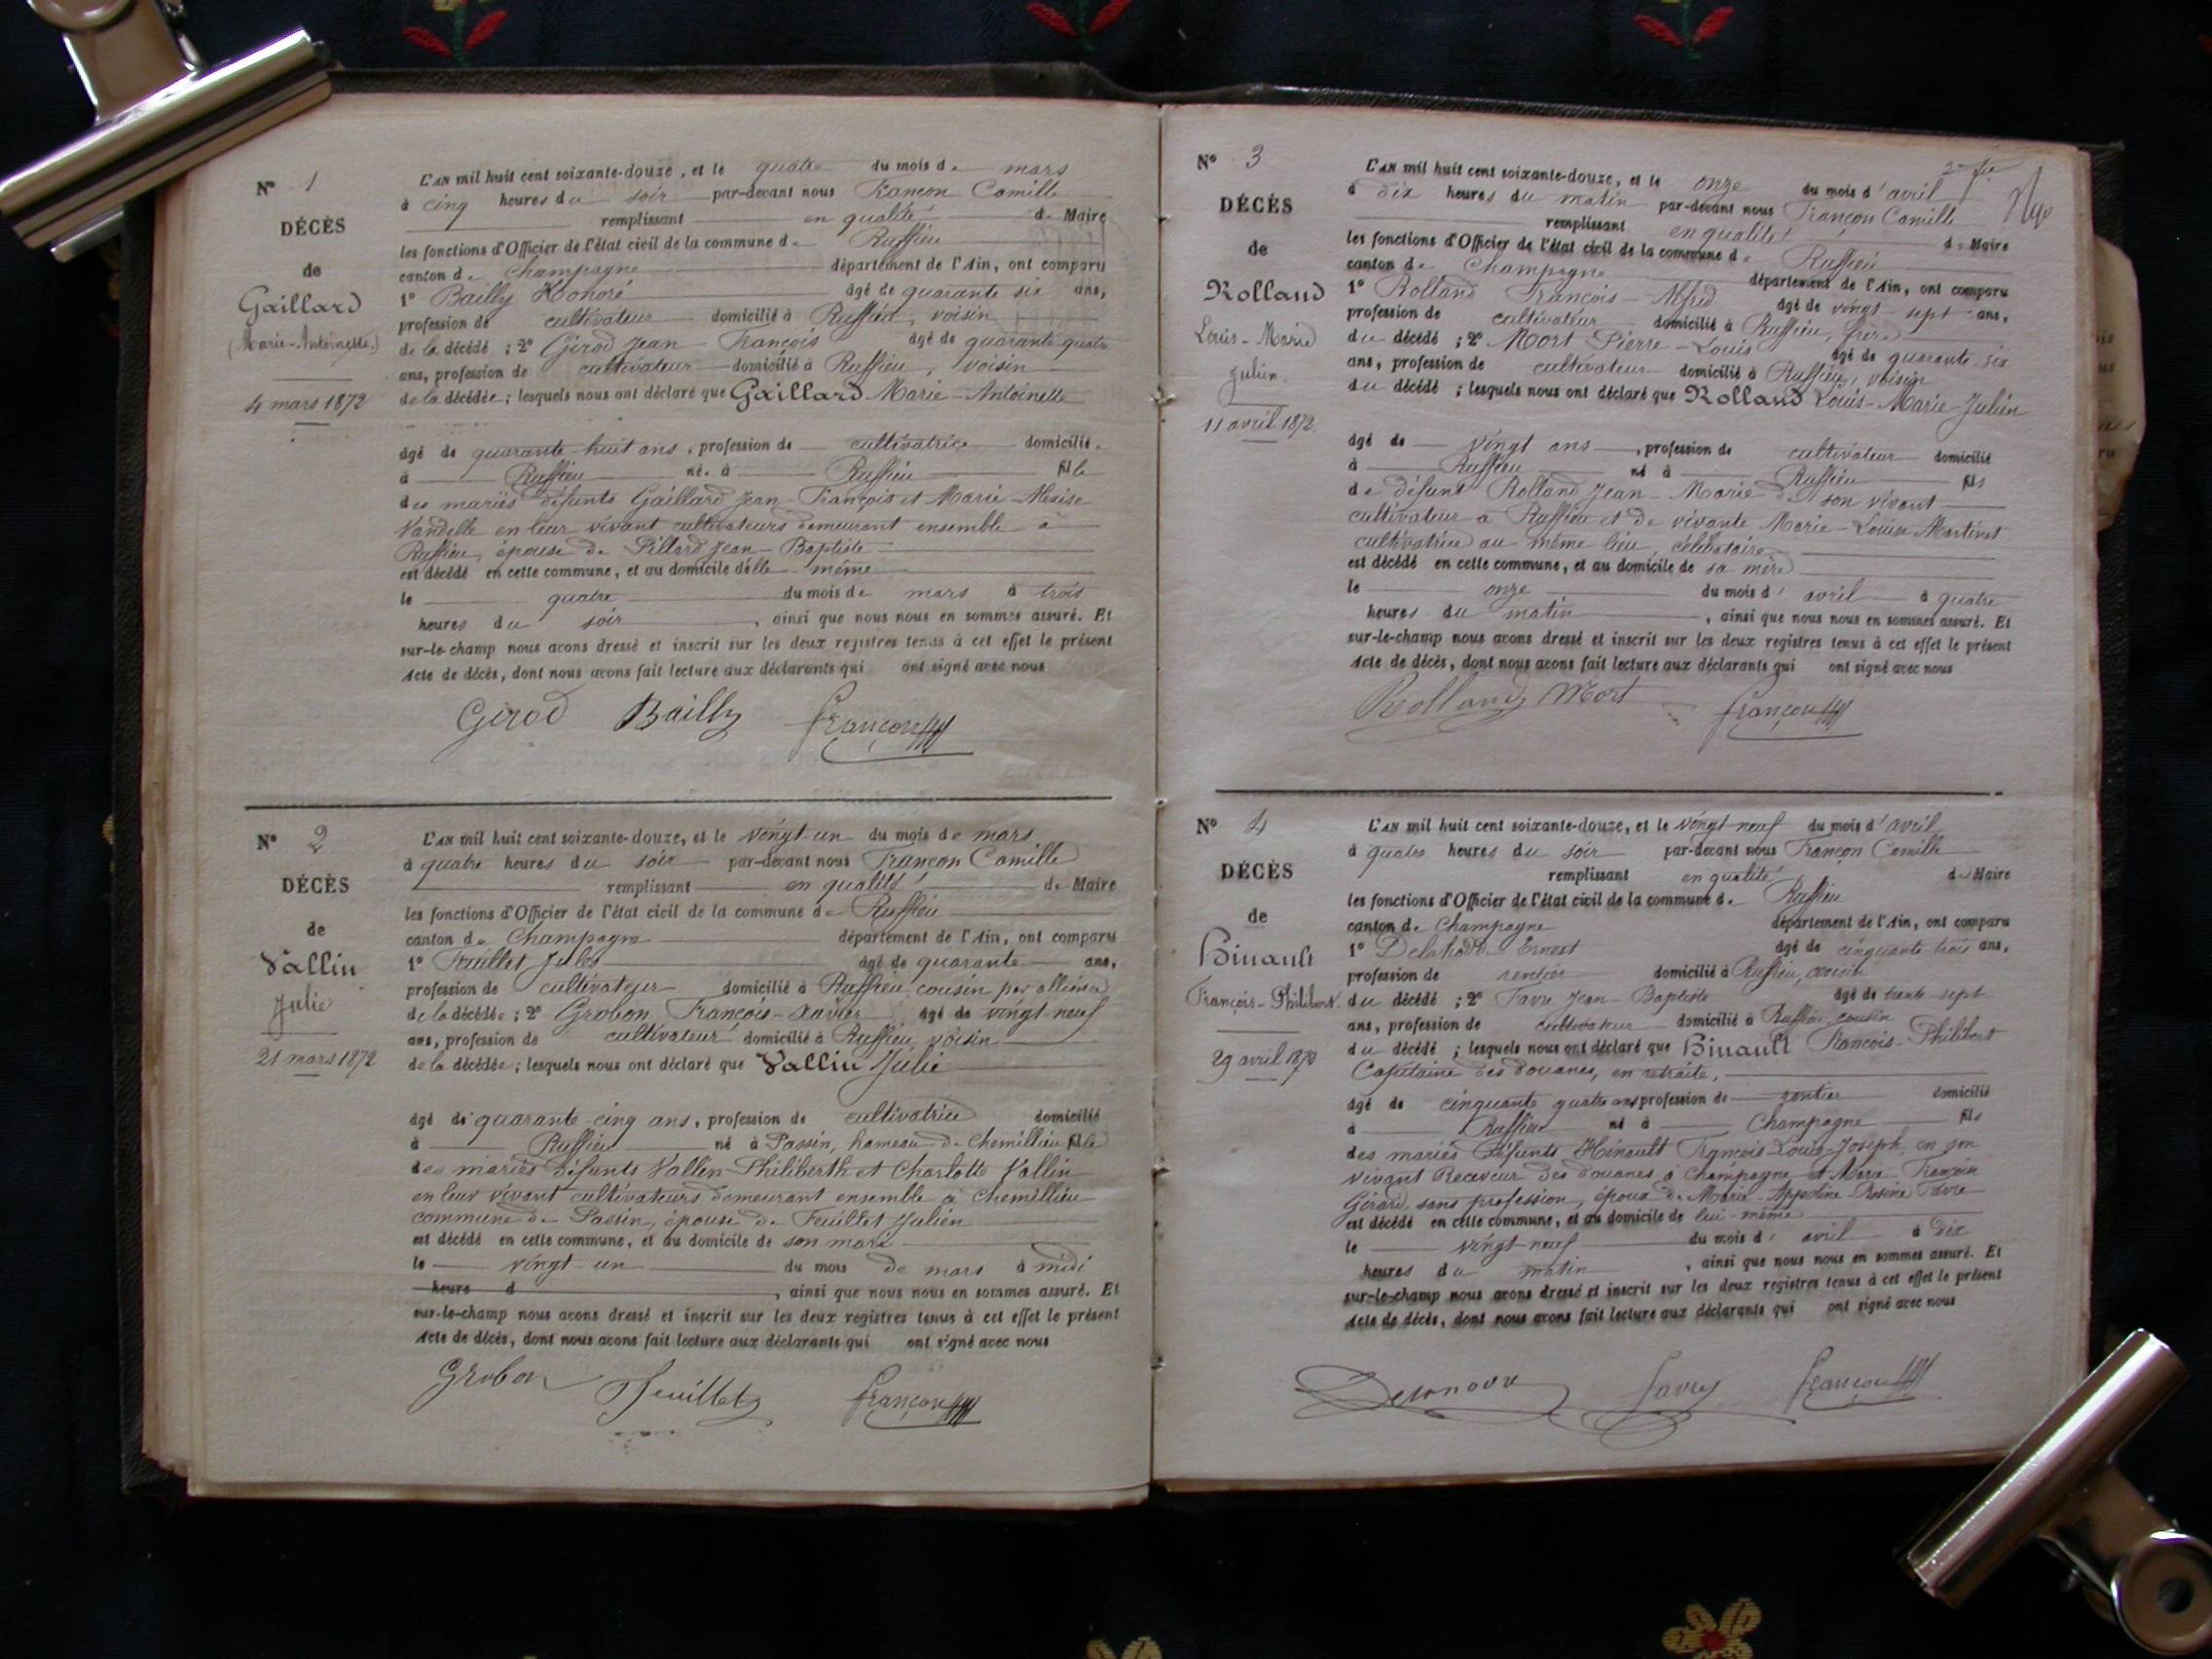 N° 1
DÉCÈS
de
Gaillard
(Marie-Antoinette)
4 mars 1872
L'AN mil huit cent soixante-douze, et le quatre du mois de mars
à cinq heures du soir par-devant nous Françon Camille
remplissant en qualité de Maire
les fonctions d'Officier de l'état civil de la commune de Ruffieu
canton de Champagne département de l'Ain, ont comparu
1° Bailly Honoré âgé de quarante six ans,
profession de cultivateur domicilié à Ruffieu, voisin
de la décédé ; 2° Girod Jean-François âgé de quarante quatre
ans, profession de cultivateur domicilié à Ruffieu, voisin
de la décédée ; lesquels nous ont déclaré que Gaillard Marie-Antoinette
âgé de quarante-huit ans, profession de cultivatrice domicilié
à Ruffieu né à Ruffieu fille
des mariés défunts Gaillard Jean-François et Marie-
en leur vivant cultivateurs demeurant ensemble à
Ruffieu, épouse de Pillard Jean-Baptiste
est décédé en cette commune, et au domicile d'elle-même
le quatre du mois de mars à trois
heures du soir, ainsi que nous nous en sommes assuré. Et
sur-le-champ nous avons dressé et inscrit sur les deux registres tenus à cet effet le présent
Acte de décès, dont nous avons fait lecture aux déclarants qui ont signé avec nous
Girod Bailly Françon
N° 2
DÉCÈS
de
Vallin
Julie
21 mars 1872
L'AN mil huit cent soixante-douze, et le vingt-un du mois de mars
à quatre heures du soir par-devant nous Françon Camille
remplissant en qualité de Maire
les fonctions d'Officier de l'état civil de la commune de Ruffieu
canton de Champagne département de l'Ain, ont comparu
1° Feuillet Jules âgé de quarante ans,
profession de cultivateur domicilié à Ruffieu cousin par alliance
de la décédée ; 2° Grobon François-Xavier âgé de vingt neuf
ans, profession de cultivateur domicilié à Ruffieu, voisin
de la décédée ; lesquels nous ont déclaré que Vallin Julie
âgé de quarante-cinq ans, profession de cultivatrice domicilié
à Ruffieu né à Passin, hameau de Chemillieu fille
des mariés défunts Vallin Philiberth et Charlotte Vallin
en leur vivant cultivateurs demeurant ensemble à Chemillieu
commune de Passin, épouse de Feuillet Julien
est décédé en cette commune, et au domicile de son mari
le vingt-un du mois de mars à midi
heure d , ainsi que nous nous en sommes assuré. Et
sur-le-champ nous avons dressé et inscrit sur les deux registres tenus à cet effet le présent
Acte de décès, dont nous avons fait lecture aux déclarants qui ont signé avec nous
Grobon Feuillet Françon
N° 3
DÉCÈS
de
Rolland
Louis-Marie
Julien
11 avril 1872
L'AN mil huit cent soixante-douze, et le onze du mois d'avril
à dix heures du matin par-devant nous Françon Camille
remplissant en qualité de Maire
les fonctions d'Officier de l'état civil de la commune de Ruffieu
canton de Champagne département de l'Ain, ont comparu
1° Rolland François-Alfred âgé de vingt-sept ans,
profession de cultivateur domicilié à Ruffieu, frère
du décédé ; 2° Mort Pierre-Louis âgé de quarante six
ans, profession de cultivateur domicilié à Ruffieu, voisin
du décédé ; lesquels nous ont déclaré que Rolland Louis-Marie-Julien
âgé de vingt ans, profession de cultivateur domicilié
à Ruffieu né à Ruffieu fils
de défunt Rolland Jean-Marie de son vivant
cultivateur à Ruffieu et de vivante Marie-Louise Martinet
cultivatrice au même lieu, célibataire
est décédé en cette commune, et au domicile de sa mère
le onze du mois d'avril à quatre
heures du matin, ainsi que nous nous en sommes assuré. Et
sur-le-champ nous avons dressé et inscrit sur les deux registres tenus à cet effet le présent
Acte de décès, dont nous avons fait lecture aux déclarants qui ont signé avec nous
Rolland Mort Françon
N° 4
DÉCÈS
de
Hinault
François-Philibert
29 avril 1872
L'AN mil huit cent soixante-douze, et le vingt-neuf du mois d'avril
à quatre heures du soir par-devant nous Françon Camille
remplissant en qualité de Maire
les fonctions d'Officier de l'état civil de la commune de Ruffieu
canton de Champagne département de l'Ain, ont comparu
1° Ernest âgé de cinquante trois ans,
profession de rentier domicilié à Ruffieu, voisin
du décédé ; 2° Favre Jean-Baptiste âgé de trente-sept
ans, profession de cultivateur domicilié à Ruffieu cousin
du décédé ; lesquels nous ont déclaré que Hinault François-Philibert
Capitaine des douanes, en retraite,
âgé de cinquante quatre ans, profession de rentier domicilié
à Ruffieu né à Champagne fils
des mariés défunts Hinault François Louis-Joseph, en son
vivant Receveur des douanes à Champagne et Marie-Françoise
Girard sans profession, époux de Marie-Appoline-Rosine Favre
est décédé en cette commune, et au domicile de lui-même
le vingt-neuf du mois d'avril à dix
heures du matin, ainsi que nous nous en sommes assuré. Et
sur-le-champ nous avons dressé et inscrit sur les deux registres tenus à cet effet le présent
Acte de décès, dont nous avons fait lecture aux déclarants qui ont signé avec nous
Favre Françon